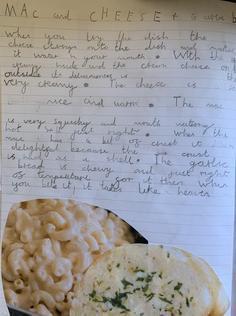 MAC and CHEESE + Garlic b
when you try the dish the
cheese into the dish and makes
it water in your mouth. With the
and the cream cheese on the
outside its deliciousness is
very creamy. The cheese is
nice and warm. The mac
is very squechy and mouth watering
hot just right. when the
has a bit of crust it
delightful because the crust
is had as a shell. The garlic
bread is chewy and just right
of temperature for it then when
you it, it tastes like heaven